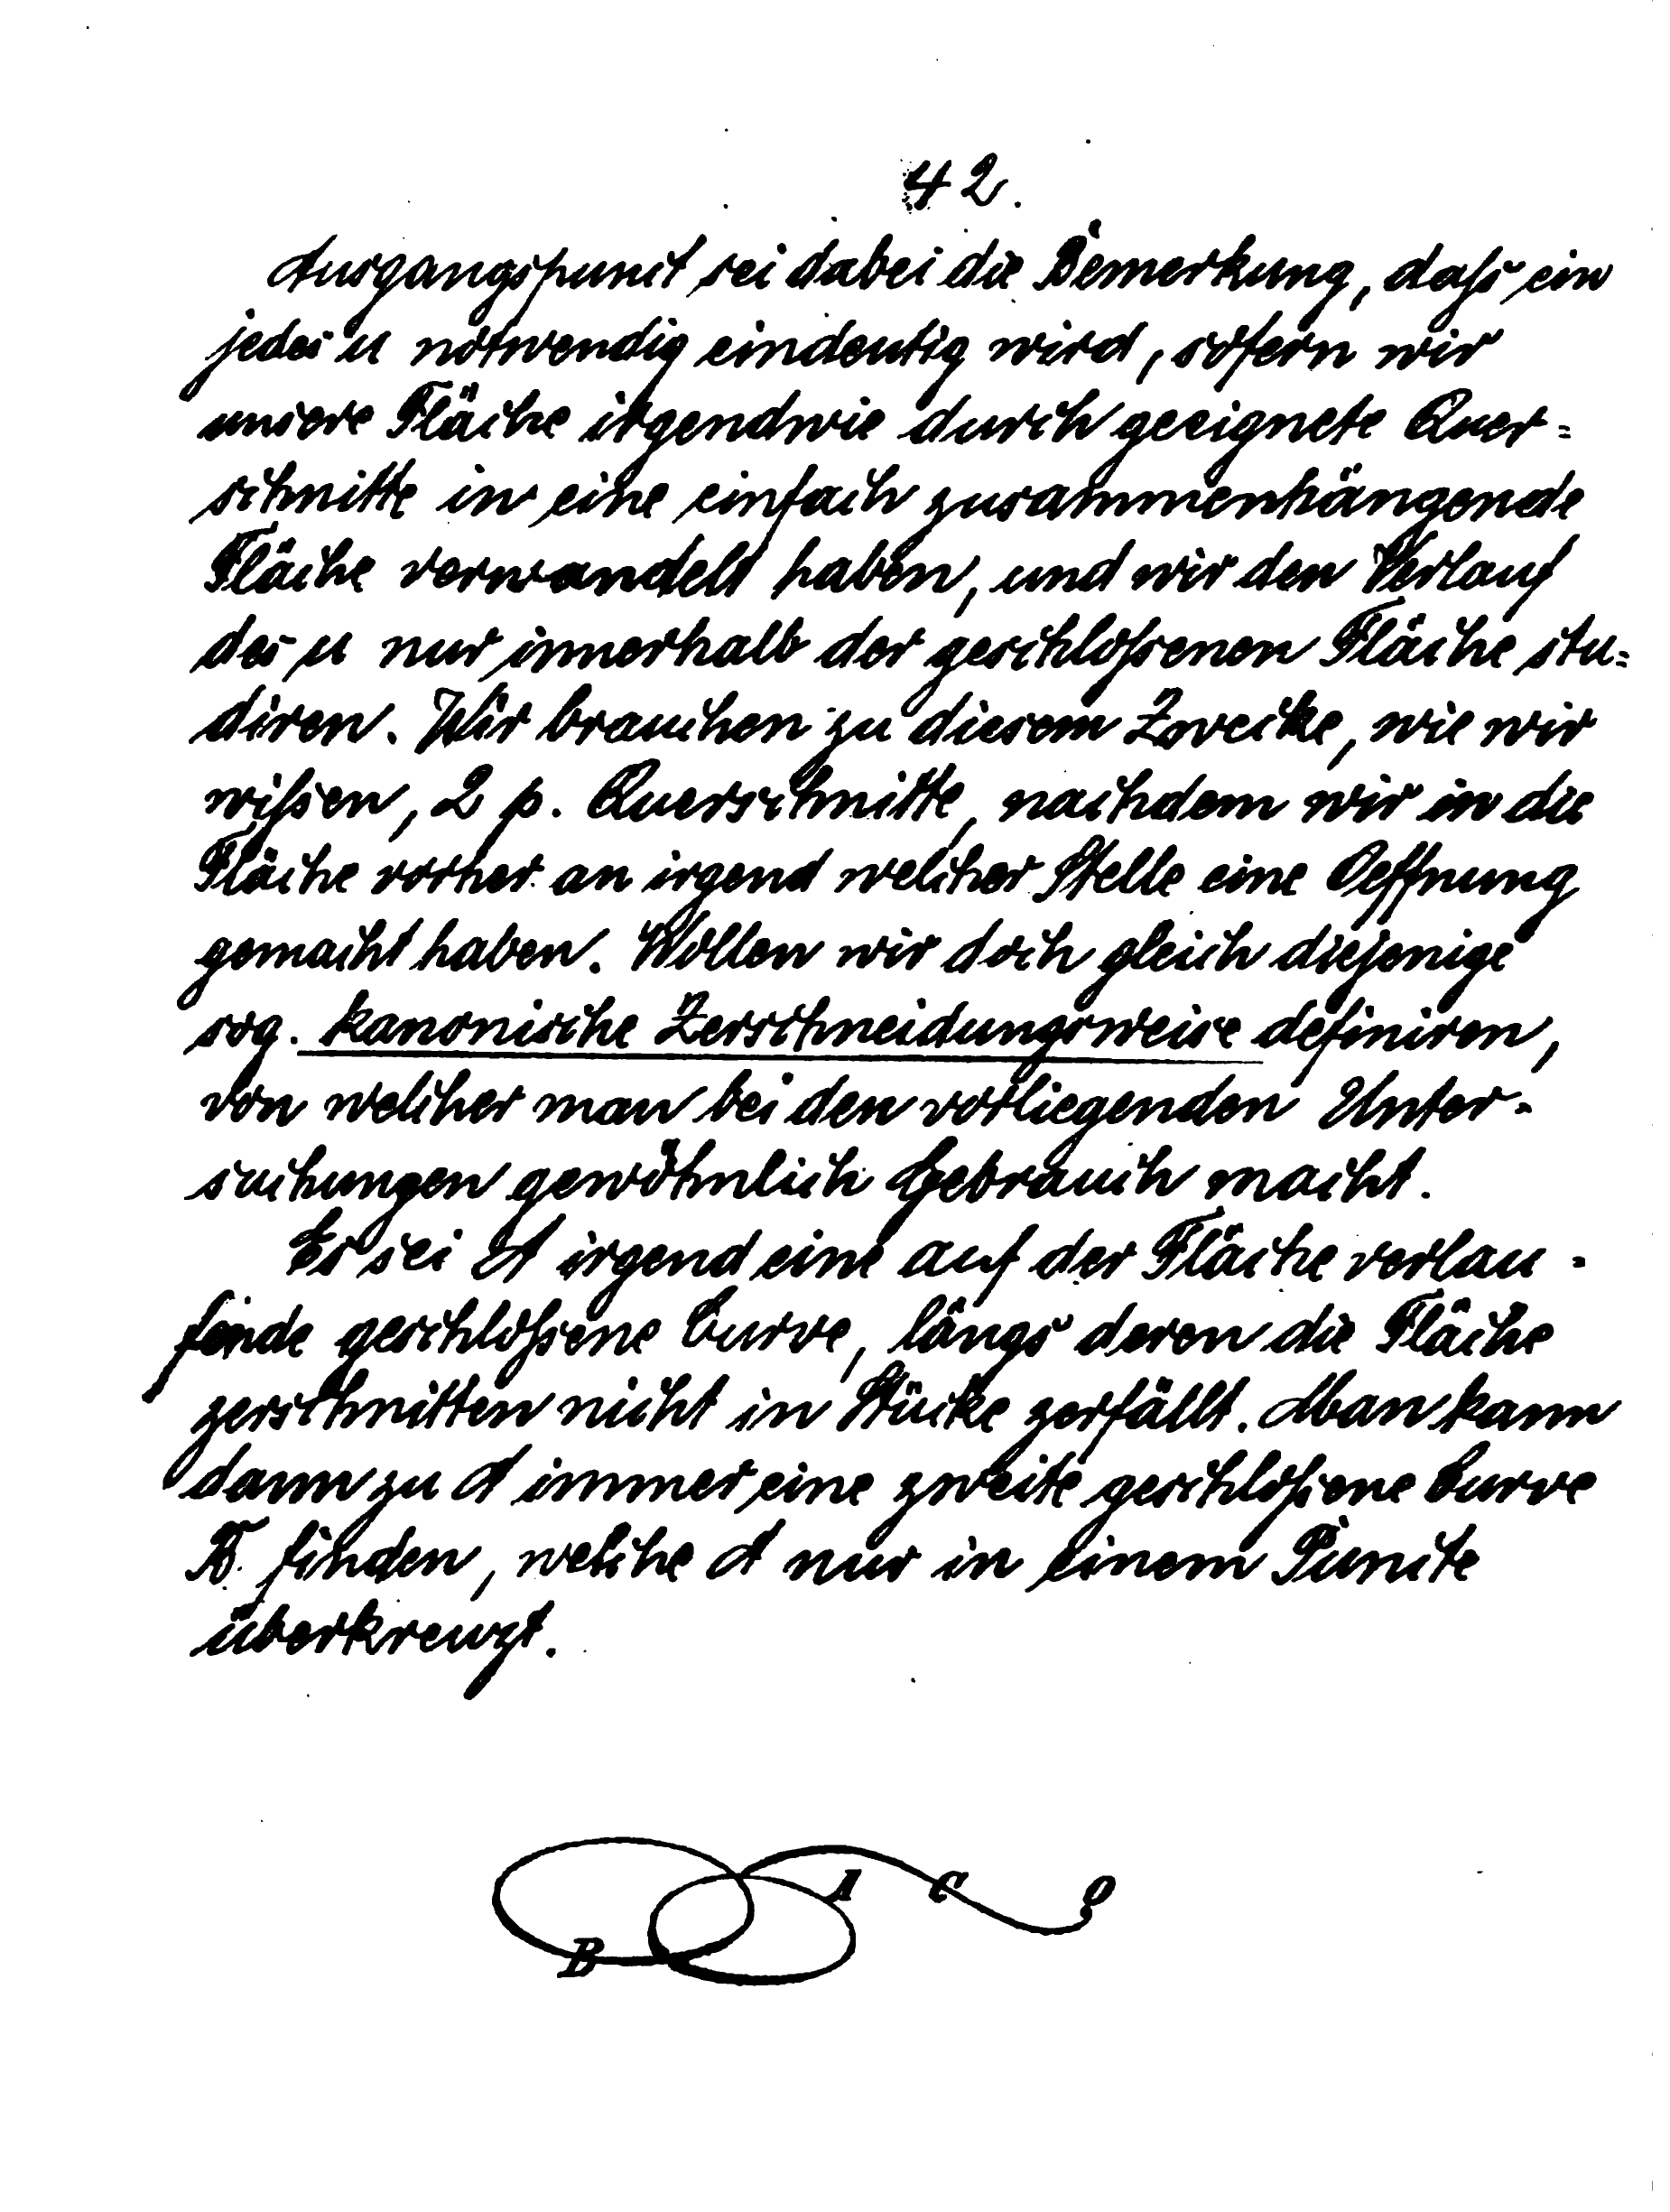 42.
Ausgangspunct sei dabei die Bemerkung, daſs ein
jedes u notwendig eindeutig wird, sofern wir
unsere Fläche irgendwie durch geeignete Quer=
schnitte in eine einfach zusammenhängende
Fläche verwandelt haben, und wir den Verlauf
des u nur innerhalb der geschloſsenen Fläche stu=
diren. Wir brauchen zu diesem Zwecke, wie wir
wiſsen, 2 p. Querschnitte, nachdem wir in die
Fläche vorher an irgend welcher Stelle eine Oeffnung
gemacht haben. Wollen wir doch gleich diejenige
sog. kanonische Zerschneidungsweise definiren,
von welcher man bei den vorliegenden Unter-
suchungen gewöhnlich Gebrauch macht.
Es sei A irgend eine auf der Fläche verlau-
fende geschloſsene Curve, längs deren die Fläche
zerschnitten nicht in Stücke zerfällt. Man kann
dann zu A immer eine zweite geschloſsene Curve
B. finden, welche A nur in einem Puncte
überkreuzt.
A C O
B